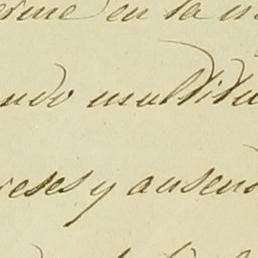 erme en la
ando multitu
reses y ausenc